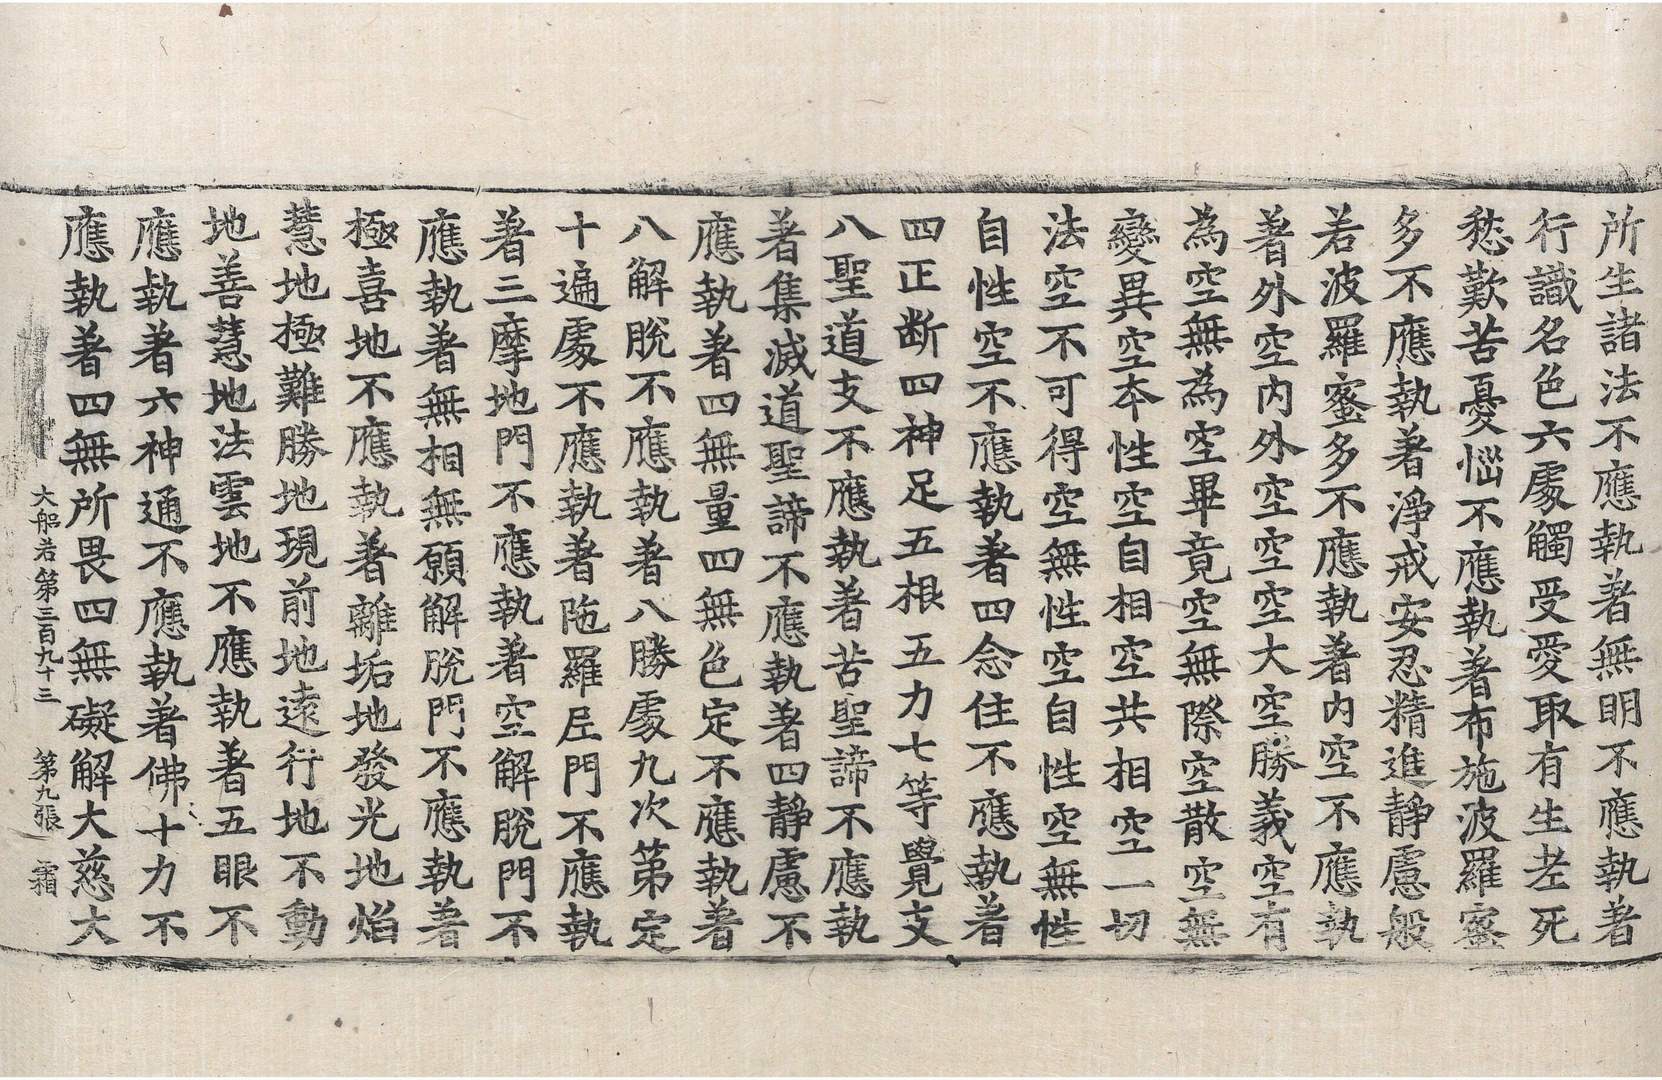 所生諸法不應執著無明不應執著
行識名色六處觸受愛取有生老死
愁歎苦憂惱不應執著布施波羅蜜
多不應執著淨戒安忍精進靜慮般
若波羅蜜多不應執著內空不應執
著外空內外空空空大空勝義空有
為空無為空畢竟空無際空散空無
變異空本性空自相空共相空一切
法空不可得空無性空自性空無性
自性空不應執著四念住不應執著
四正斷四神足五根五力七等覺支
八聖道支不應執著苦聖諦不應執
著集滅道聖諦不應執著四靜慮不
應執著四無量四無色定不應執著
八解脫不應執著八勝處九次第定
十遍處不應執著陁羅尼門不應執
著三摩地門不應執著空解脫門不
應執著無相無願解脫門不應執著
極喜地不應執著離垢地發光地焰
慧地極難勝地現前地遠行地不動
地善慧地法雲地不應執著五眼不
應執著六神通不應執著佛十力不
應執著四無所畏四無礙解大慈大
大般若第三百九十三 第九張 霜